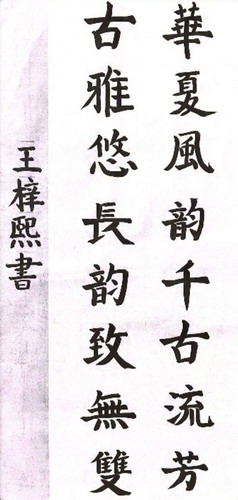 華夏風韵千古流芳
古雅悠長韵致無雙
王梓熙書